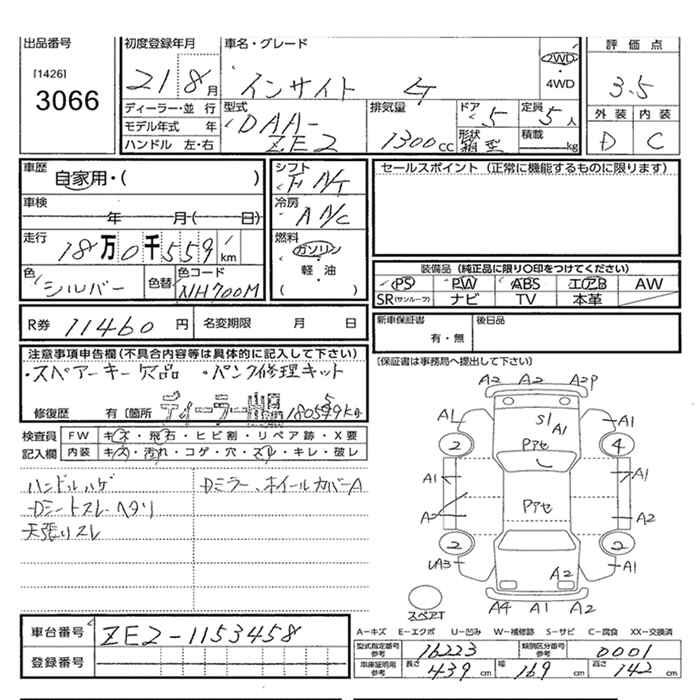 出品番号
[1426]
3066
初度登録年月
21 8月
ディーラー・並 行
モデル年式 年
ハンドル 左・右
車名・グレード
インサイト
2WD
・
4WD
型式
DAA-
ZE2
排気量
1300cc
ドア
5
定員
5人
形状
箱型
積載
kg
評価点
3.5
外装 内装
D C
車歴
自家用・( )
車検
年 月( 日)
走行
18万0千559km
色
シルバー
色替
色コード
NH700M
シフト
冷房
燃料
ガソリン
・
軽・油
( )
セールスポイント（正常に機能するものに限ります）
装備品（純正品に限り〇印をつけてください）
PS PW ABS エアB AW
SR(サンルーフ) ナビ TV 本革
R券 11460円 名変期限 月 日
新車保証書
有・無
後日品
〔保証書は事務局へ提出して下さい〕
注意事項申告欄（不具合内容等は具体的に記入して下さい）
・スペアーキー欠品 ・パンク修理キット
修復歴 有〔箇所 ディーラー
検査員
記入欄
FW キズ・飛石・ヒビ割・リペア跡・X要
内装 キズ・汚れ・コゲ・穴・スレ・キレ・破レ
ハンドルハゲ
Dシートスレ・ヘタリ
天張りスレ
Dミラー、ホイールカバーA
A2 A2 A2P
A1 S1 A1 A1
2 Pアセ 4
A1 A1
Pアセ
A2 A2
2 2
UA3 A2 A1
スペアT
A4 A1 A2
車台番号 ZE2-1153458
登録番号
A－キズ E－エクボ U－凹み W－補修跡 S－サビ C－腐食 XX－交換済
型式指定番号
参考
16223
類別区分番号
参考
0001
車庫証明用
参考
長さ 439cm 幅 169cm 高さ 142cm